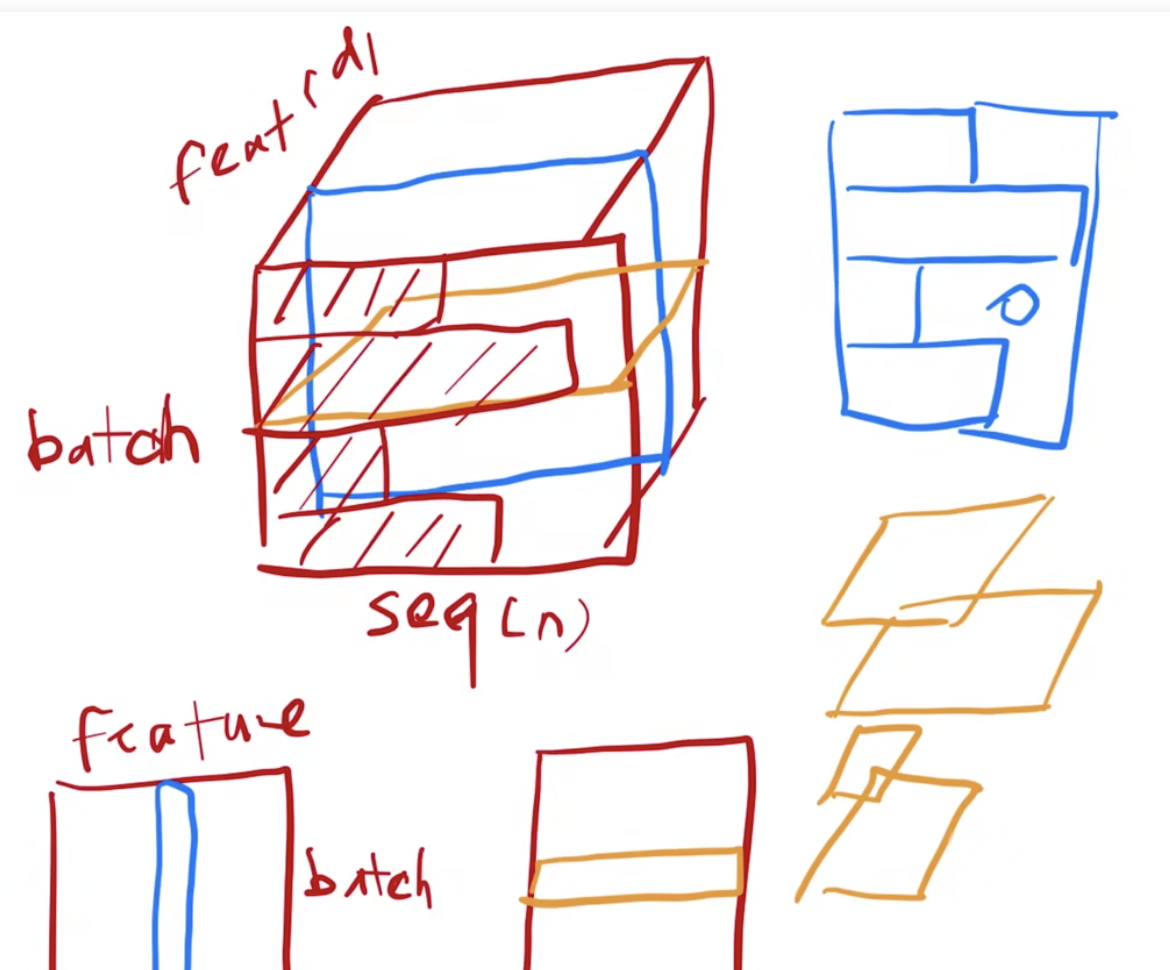 feat (d)
0
batch
seq (n)
feature
batch